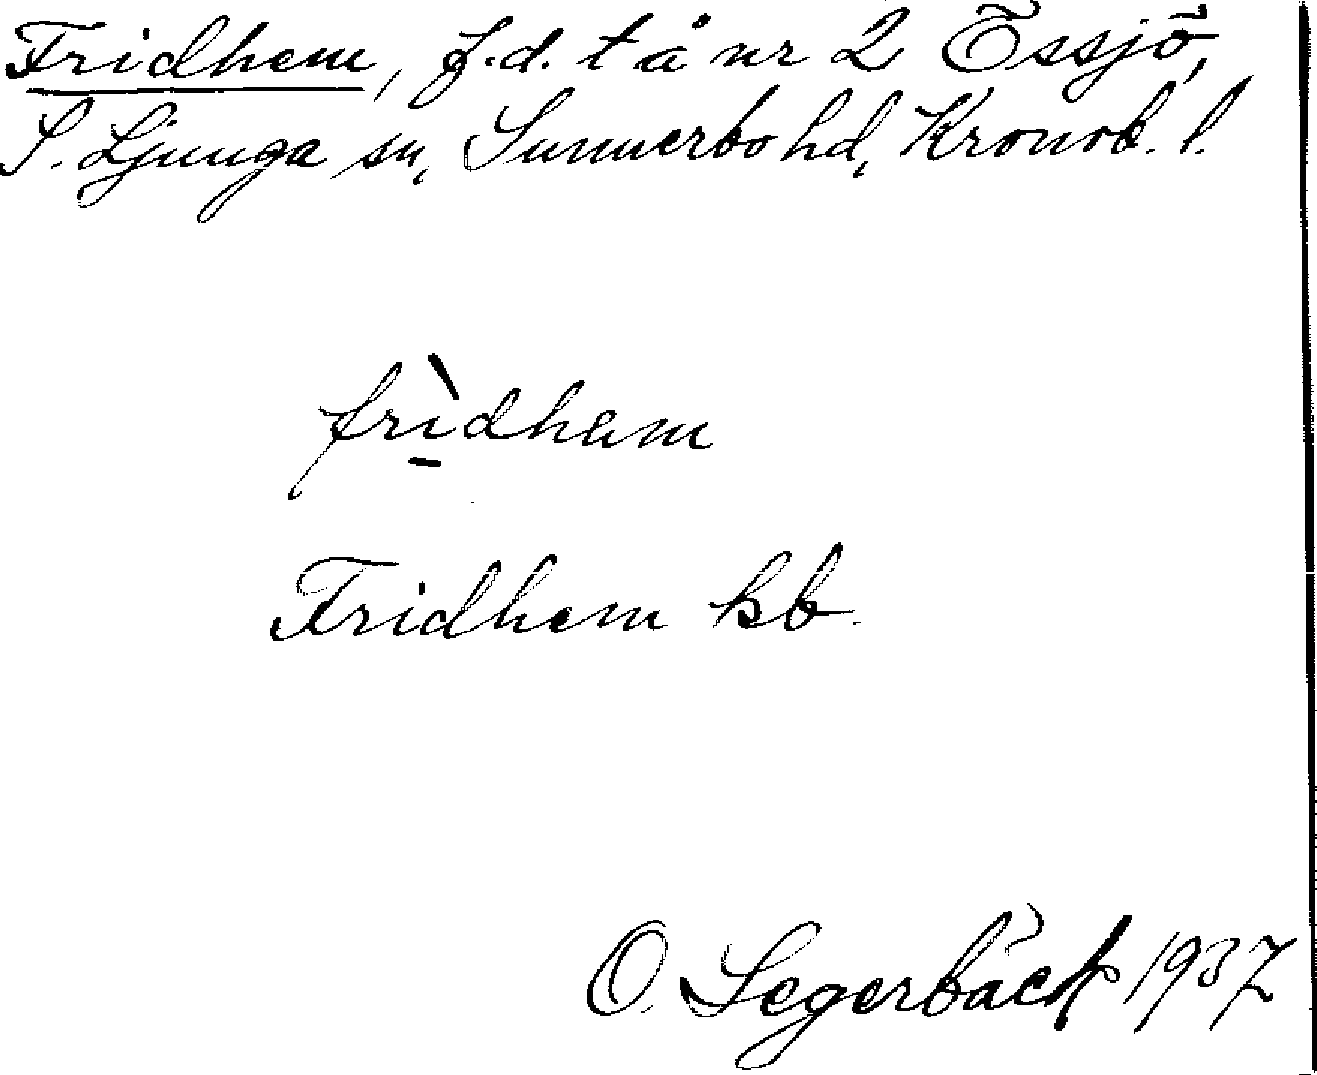 Fridhem, f.d. t å nr 2 Össjö,
S. Ljunga sn, Sunnerbo hd, Kronob. l.
frìdhem
Fridhem kb.
O. Segerbäck 1937